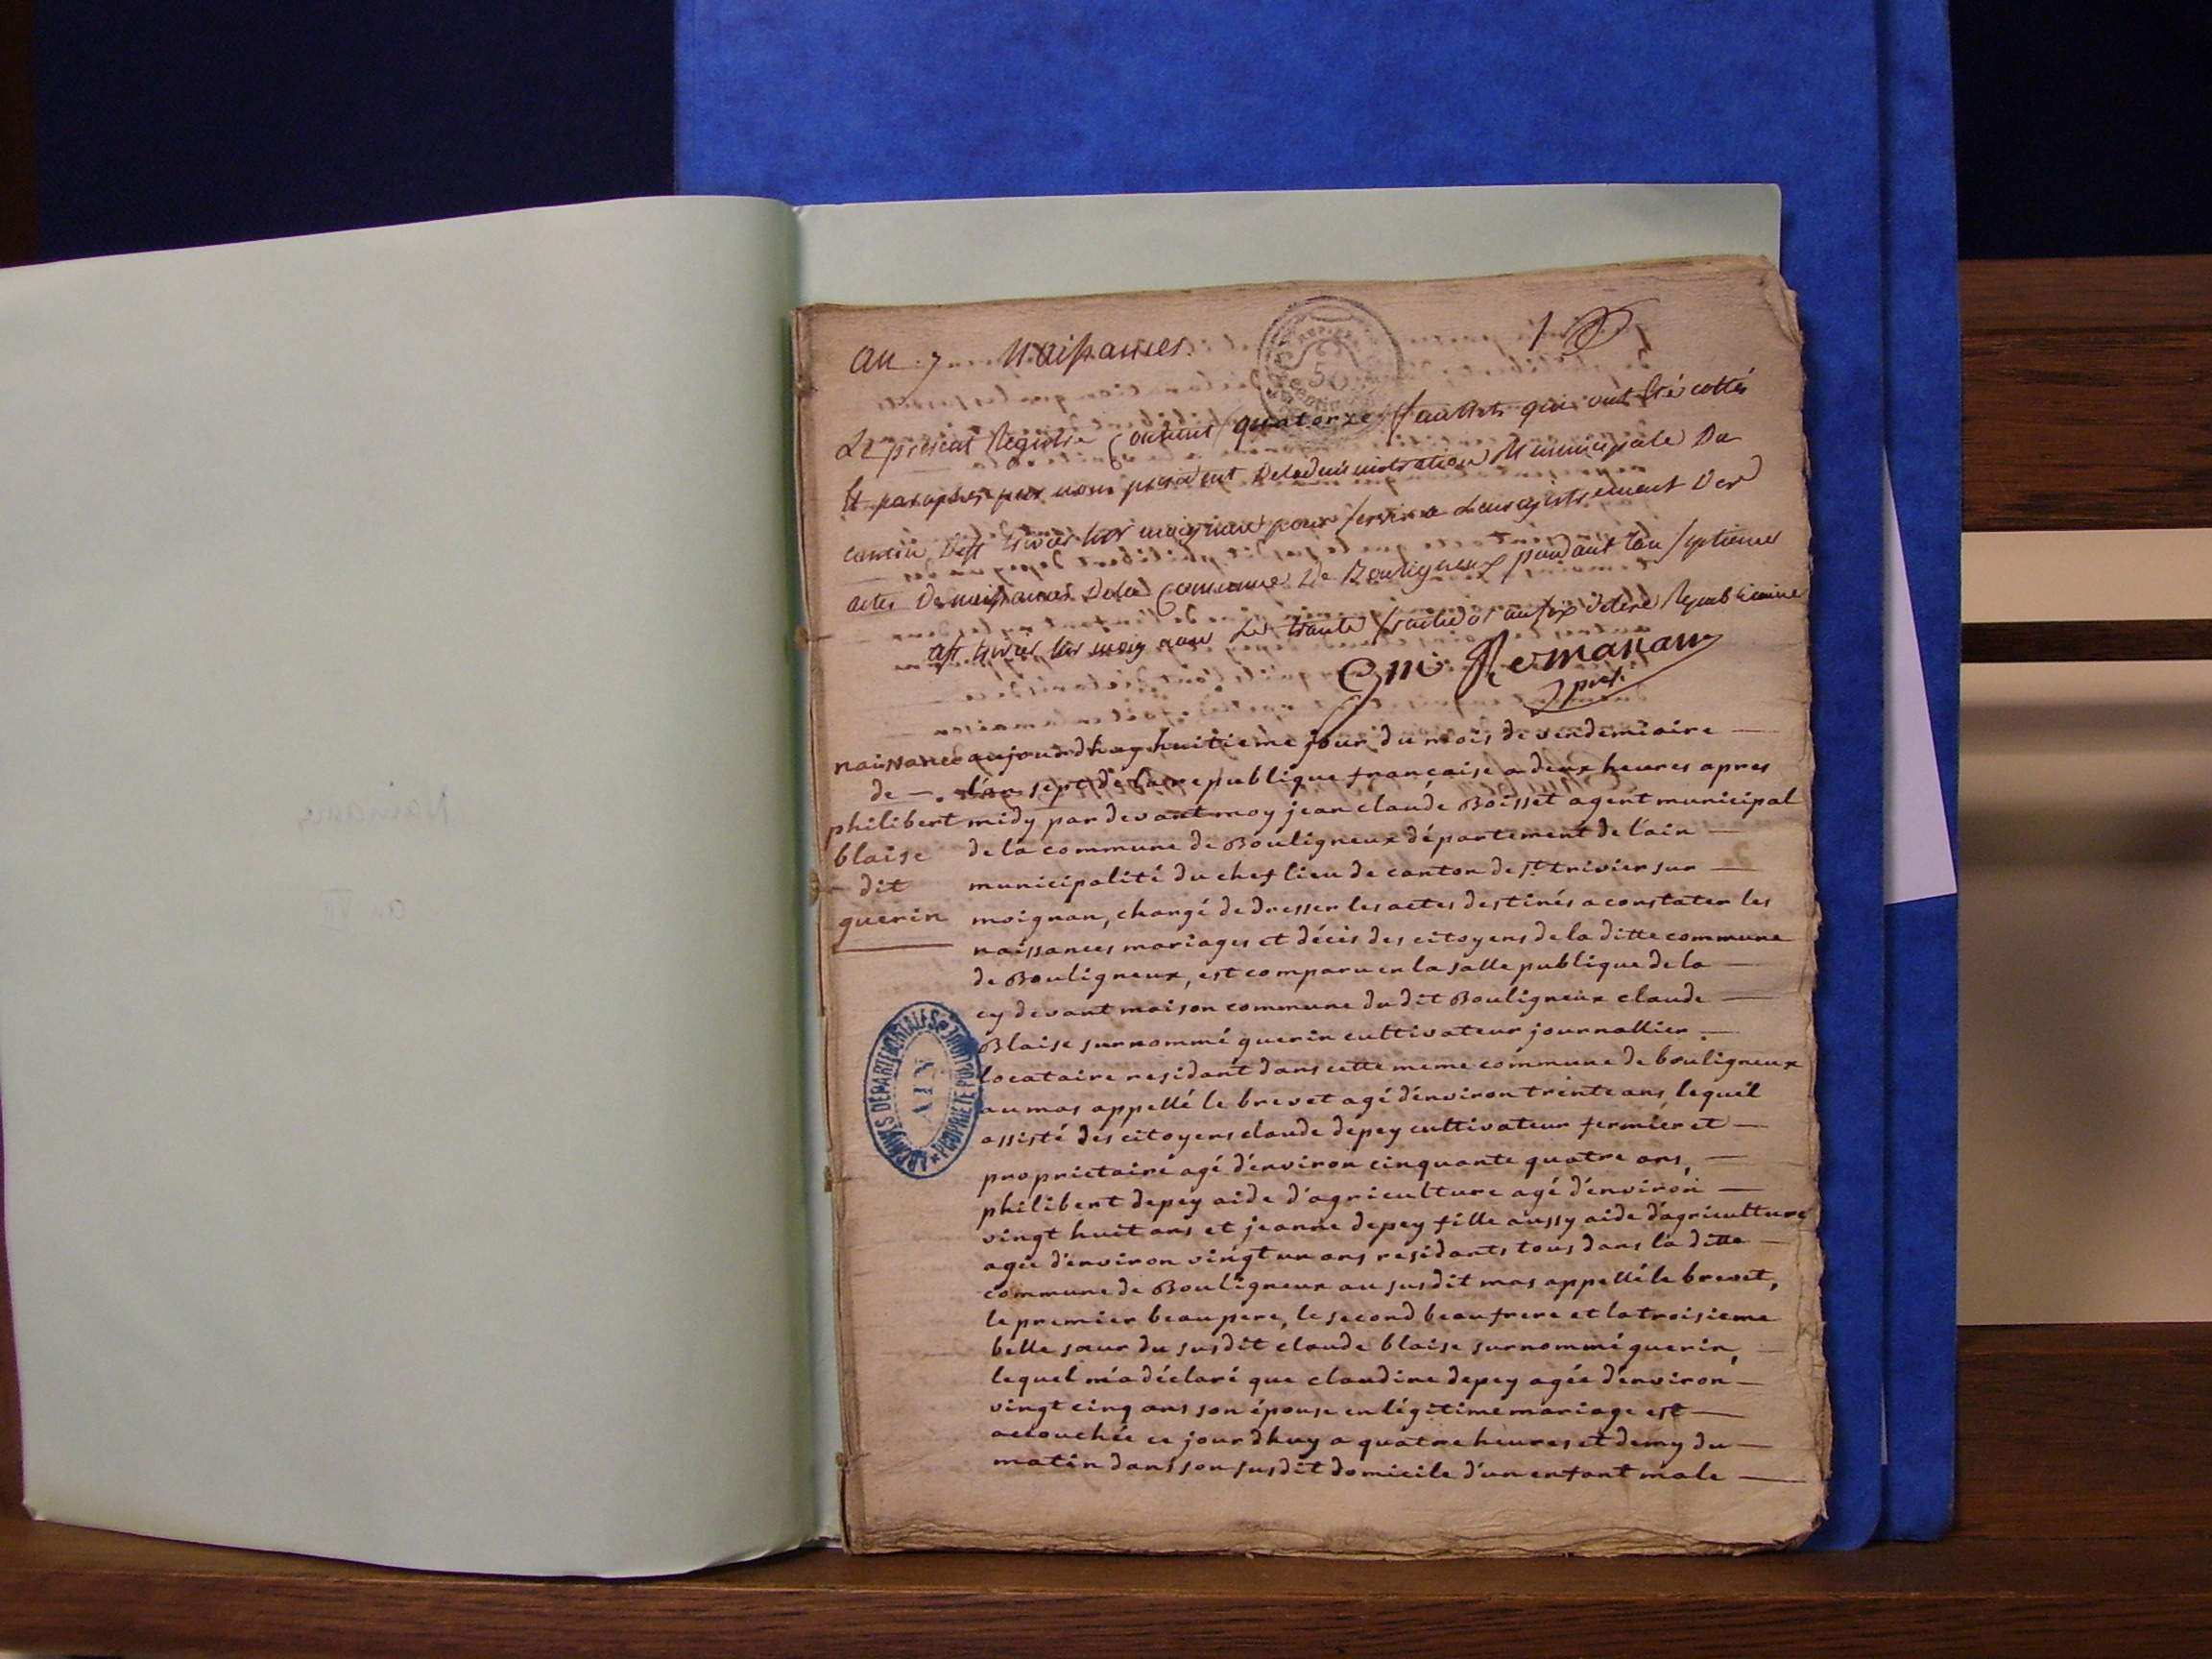 an 7 Naissances.
1
Le présent Registre contient quatorze feuillets qui ont été cottés
Et paraphés par nous président de ladministration Municipale Du
canton de st trivier sur moignan pour servir a Lenregistrement Des
actes De naissances De la Commune De Bouligneux pendant l'an septieme
a st trivier sur moignan Le trente fructidor an six de l'ere Republicaine
presi.
naissance
de —
philibert
blaise
dit
guerin
aujourdhuy huitieme jour du mois de vendemiaire
l'an sept de la republique française a deux heures apres
midy par devant moy jean claude Boisset agent municipal
de la commune de Bouligneux département de l'ain
municipalité du chef lieu de canton de st trivier sur
moignan, chargé de dresser les actes destinés a constater les
naissances mariages et décès des citoyens de la ditte commune
de Bouligneux, est comparu en la salle publique de la
cy devant maison commune du dit Bouligneux claude
Blaise surnommé guerin cultivateur journallier
locataire residant dans cette meme commune de bouligneux
au mas appellé le brevet agé d'environ trente ans, lequel
assisté des citoyens claude depey cultivateur fermier et
proprietaire agé d'environ cinquante quatre ans,
philibert depey aide d'agriculture agé d'environ
vingt huit ans et jeanne depey fille aussy aide d'agriculture
agée d'environ vingt un ans residants tous dans la ditte
commune de Bouligneux au susdit mas appellé le brevet,
le premier beau pere, le second beau frere et la troisieme
belle sœur du susdit claude blaise surnommé guerin,
lequel m'a déclaré que claudine depey agée d'environ
vingt cinq ans son épouse en légitime mariage est
accouchée ce jourdhuy a quatre heures et demy du
matin dans son susdit domicile d'un enfant male
ARCHIVES DÉPARTEMENTALES
AIN
PROPRIÉTÉ PUBLIQUE